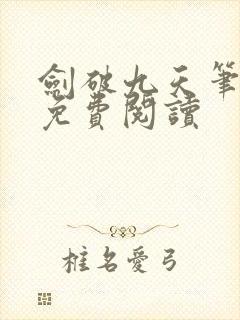 劍破九天筆
免費閱讀
椎名愛弓